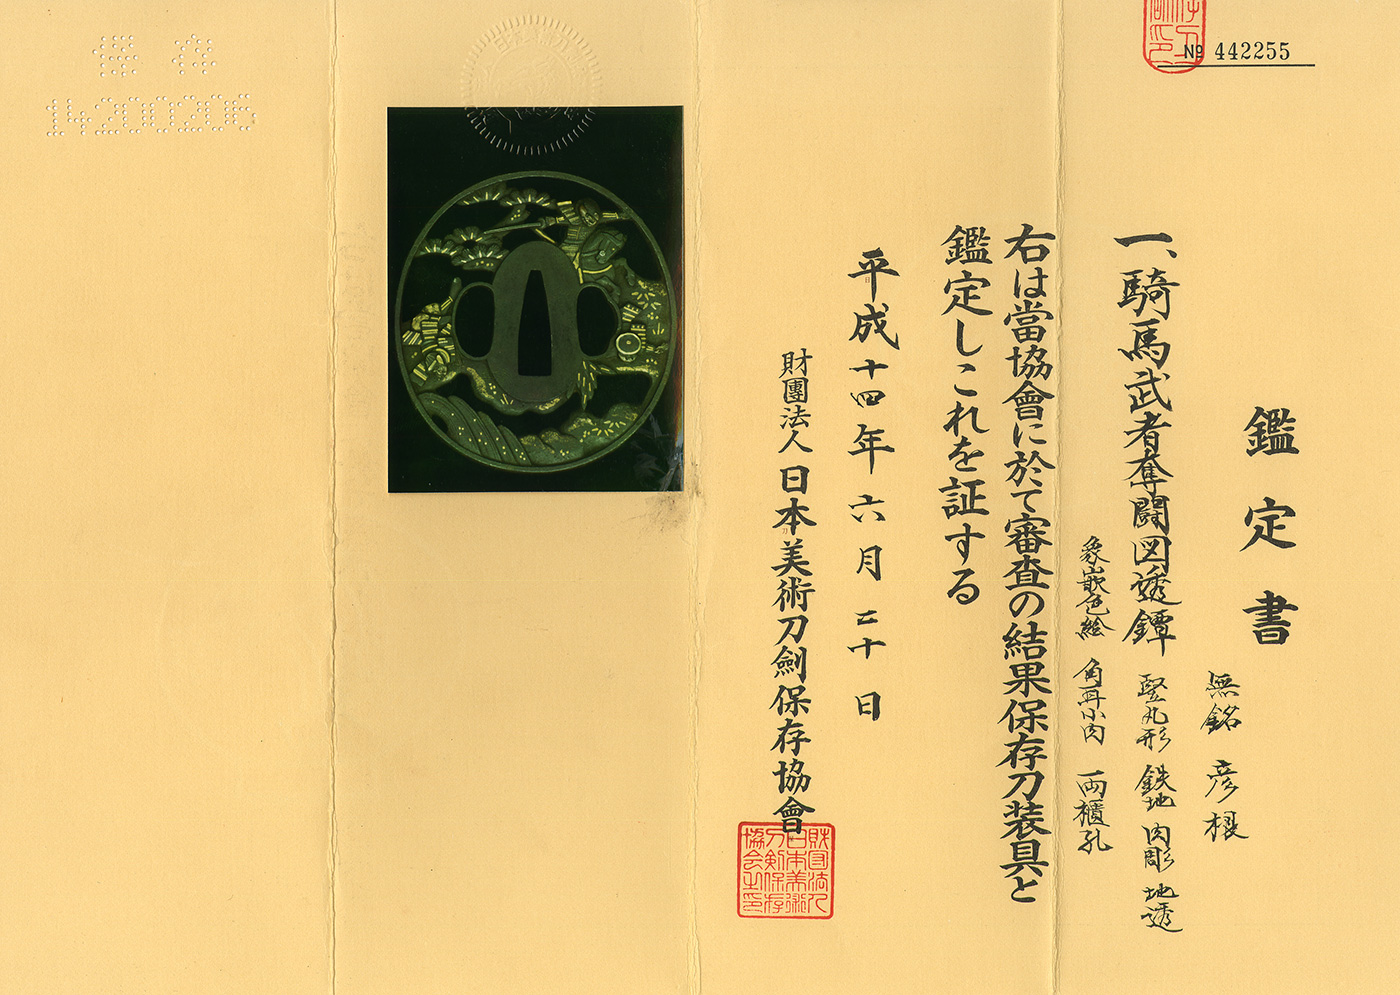 No 442255
鑑定書
無銘 彦根
一、騎馬武者奪闘図透鐔
竪丸形 鉄地 肉彫地透
象嵌色絵 角耳小肉 両櫃孔
右は當協會に於て審査の結果保存刀装具と
鑑定しこれを証する
平成十四年六月二十日
財團法人 日本美術刀劍保存協會
財団法人
日本美術
刀剣保存
協会之印
保存
14200206